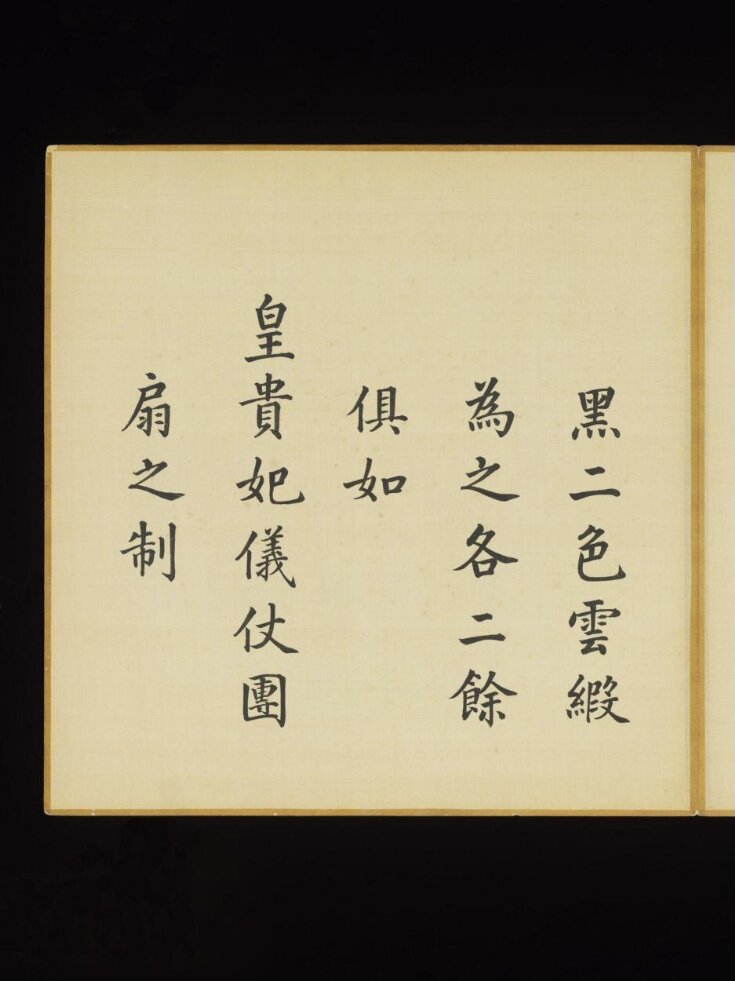 黑二色雲緞
為之各二餘
俱如
皇貴妃儀仗團
扇之制